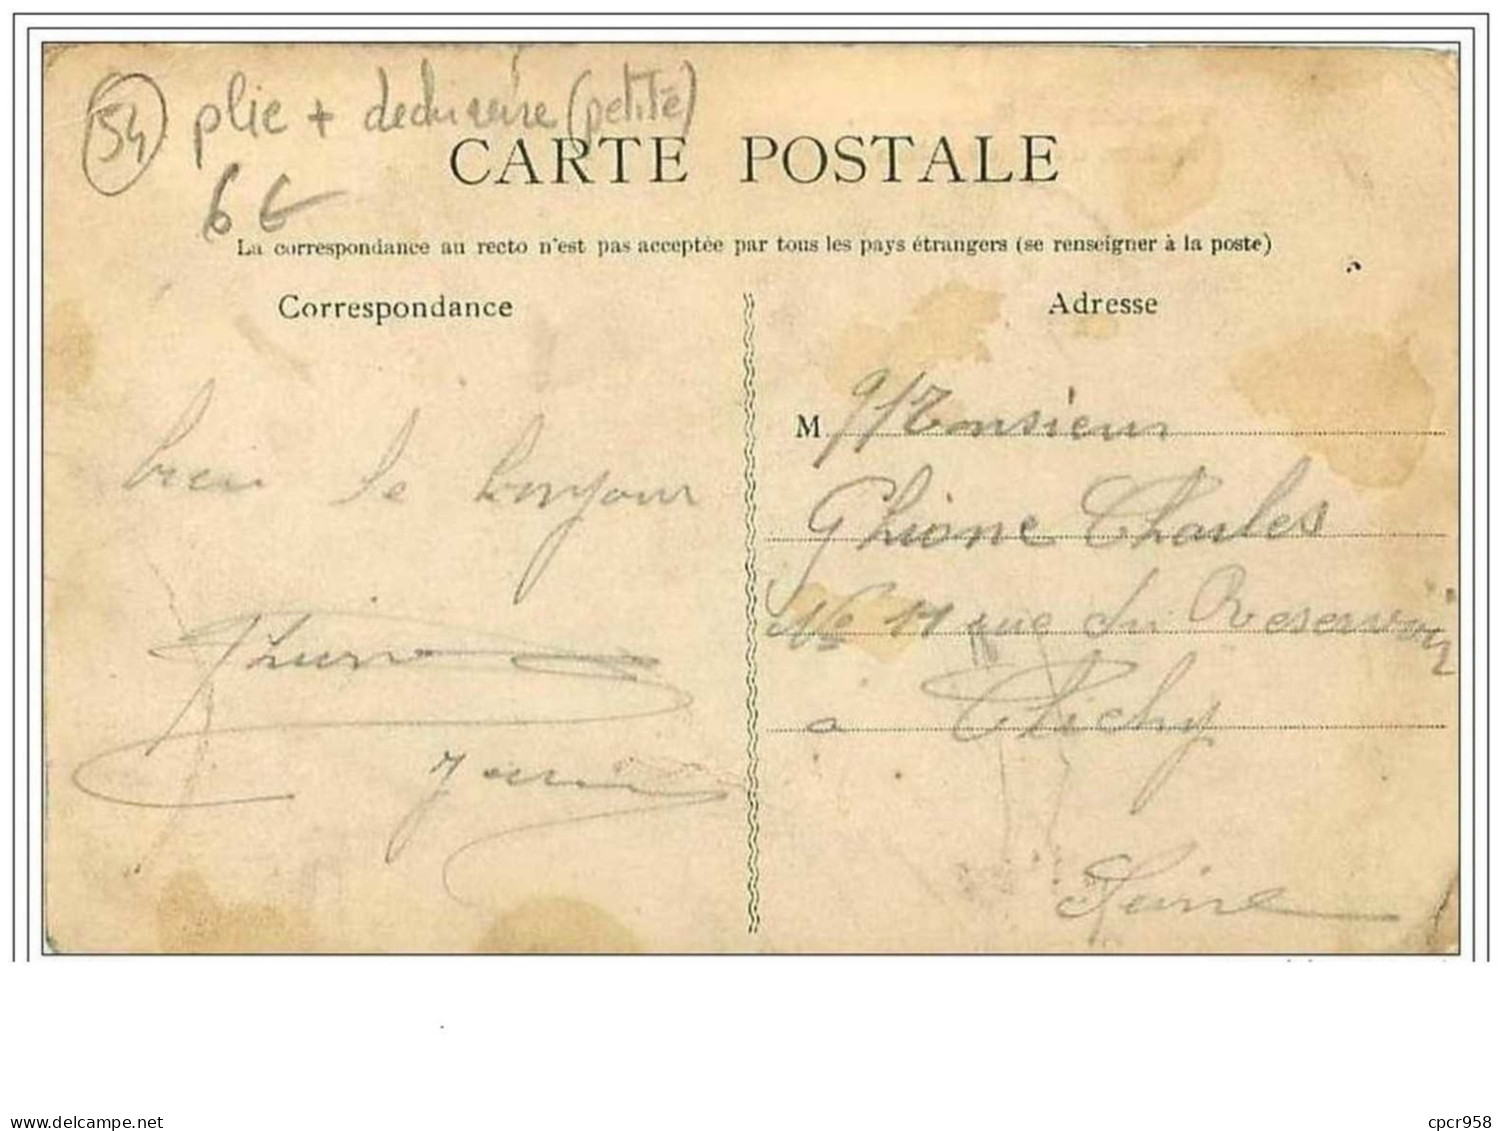 54 plie + dechirure (petite)
6 €
CARTE POSTALE
La correspondance au recto n'est pas acceptée par tous les pays étrangers (se renseigner à la poste)
Correspondance
Adresse
bien le bonjour
M Monsieur
Ghione Charles
No 11 rue du Reservoir
a Clichy
Seine
delcampe.net
cpcr958